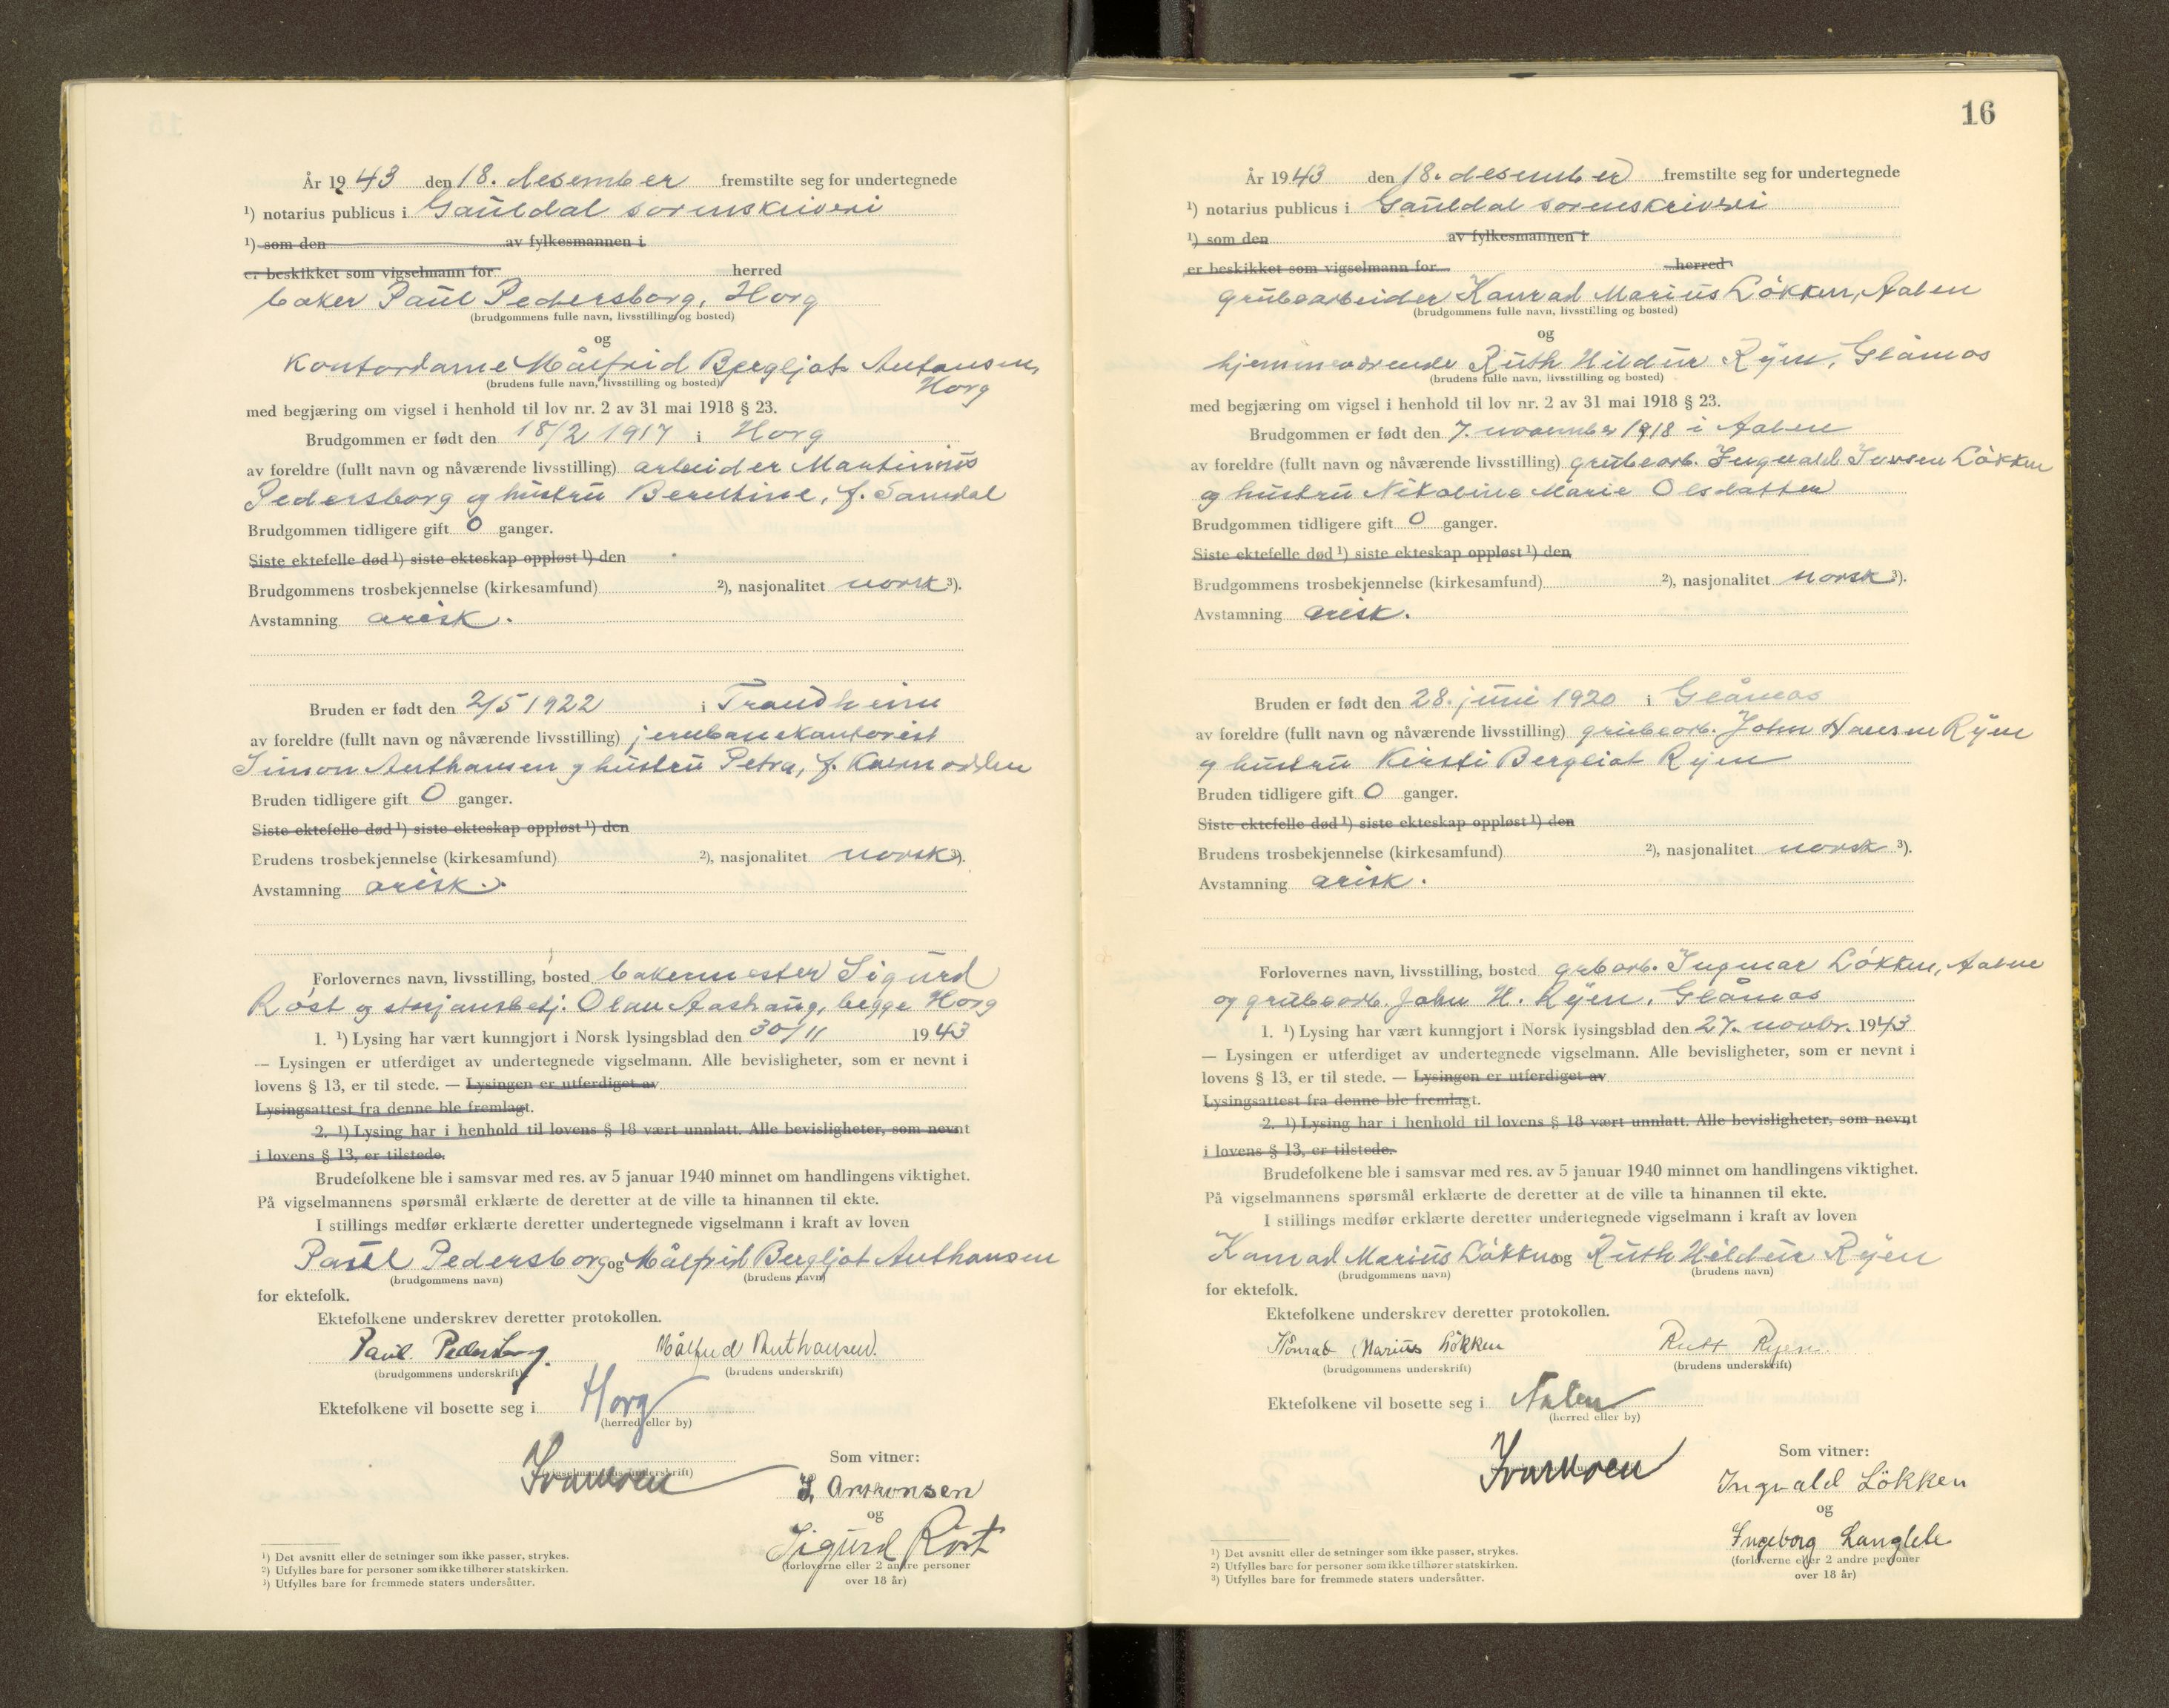 År 1943 den 18. desember fremstilte seg for undertegnede
¹) notarius publicus i Gauldal sorenskriveri
¹) som den av fylkesmannen i
er beskikket som vigselmann for herred
baker Paul Pedersborg, Horg
(brudgommens fulle navn, livsstilling og bosted)
og
Kontordame Målfrid Bergljot Anthonsen,
(brudens fulle navn, livsstilling og bosted) Horg
med begjæring om vigsel i henhold til lov nr. 2 av 31 mai 1918 § 23.
Brudgommen er født den 18/2 1917 i Horg
av foreldre (fullt navn og nåværende livsstilling) arbeider Martinius
Pedersborg og hustru Berntine, f. Samdal
Brudgommen tidligere gift 0 ganger.
Siste ektefelle død ¹) siste ekteskap oppløst ¹) den
Brudgommens trosbekjennelse (kirkesamfund) ²), nasjonalitet norsk ³).
Avstamning arisk.
Bruden er født den 2/5 1922 i Trondheim
av foreldre (fullt navn og nåværende livsstilling) jernbanekontorist
Simon Anthonsen og hustru Petra, f.
Bruden tidligere gift 0 ganger.
Siste ektefelle død ¹) siste ekteskap oppløst ¹) den
Brudens trosbekjennelse (kirkesamfund) ²), nasjonalitet norsk ³).
Avstamning arisk.
Forlovernes navn, livsstilling, bosted bakermester Sigurd
Røst og Olav Aashaug, begge Horg
1. ¹) Lysing har vært kunngjort i Norsk lysingsblad den 30/11 1943
— Lysingen er utferdiget av undertegnede vigselmann. Alle bevisligheter, som er nevnt i
lovens § 13, er til stede. — Lysingen er utferdiget av
Lysingsattest fra denne ble fremlagt.
2. ¹) Lysing har i henhold til lovens § 18 vært unnlatt. Alle bevisligheter, som nevnt
i lovens § 13, er tilstede.
Brudefolkene ble i samsvar med res. av 5 januar 1940 minnet om handlingens viktighet.
På vigselmannens spørsmål erklærte de deretter at de ville ta hinannen til ekte.
I stillings medfør erklærte deretter undertegnede vigselmann i kraft av loven
Paul Pedersborg og Målfrid Bergljot Anthonsen
(brudgommens navn) (brudens navn)
for ektefolk.
Ektefolkene underskrev deretter protokollen.
Paul Pedersborg. Målfrid Anthonsen.
(brudgommens underskrift) (brudens underskrift)
Ektefolkene vil bosette seg i Horg
(herred eller by)
Som vitner:
(vigselmannens underskrift)
S. Anthonsen
og
Sigurd Röst
(forloverne eller 2 andre personer
over 18 år)
¹) Det avsnitt eller de setninger som ikke passer, strykes.
²) Utfylles bare for personer som ikke tilhører statskirken.
³) Utfylles bare for fremmede staters undersåtter.
16
År 1943 den 18. desember fremstilte seg for undertegnede
¹) notarius publicus i Gauldal sorenskriveri
¹) som den av fylkesmannen i
er beskikket som vigselmann for herred
grubearbeider Konrad Marius Løkken, Aalen
(brudgommens fulle navn, livsstilling og bosted)
og
hjemmeværende Ruth Hildur Ryen, Glåmos
(brudens fulle navn, livsstilling og bosted)
med begjæring om vigsel i henhold til lov nr. 2 av 31 mai 1918 § 23.
Brudgommen er født den 7. november 1918 i Aalen
av foreldre (fullt navn og nåværende livsstilling) grubearb. Ingvald Iversen Løkken
og hustru Nikoline Marie Olsdatter
Brudgommen tidligere gift 0 ganger.
Siste ektefelle død ¹) siste ekteskap oppløst ¹) den
Brudgommens trosbekjennelse (kirkesamfund) ²), nasjonalitet norsk ³).
Avstamning arisk.
Bruden er født den 28. juni 1920 i Glåmos
av foreldre (fullt navn og nåværende livsstilling) grubearb. John Hansen Ryen
og hustru Kirsti Bergliot Ryen
Bruden tidligere gift 0 ganger.
Siste ektefelle død ¹) siste ekteskap oppløst ¹) den
Brudens trosbekjennelse (kirkesamfund) ²), nasjonalitet norsk ³).
Avstamning arisk.
Forlovernes navn, livsstilling, bosted Ingmar Løkken, Aalen
og grubearb. John H. Ryen, Glåmos
1. ¹) Lysing har vært kunngjort i Norsk lysingsblad den 27. novbr. 1943
— Lysingen er utferdiget av undertegnede vigselmann. Alle bevisligheter, som er nevnt i
lovens § 13, er til stede. — Lysingen er utferdiget av
Lysingsattest fra denne ble fremlagt.
2. ¹) Lysing har i henhold til lovens § 18 vært unnlatt. Alle bevisligheter, som nevnt
i lovens § 13, er tilstede.
Brudefolkene ble i samsvar med res. av 5 januar 1940 minnet om handlingens viktighet.
På vigselmannens spørsmål erklærte de deretter at de ville ta hinannen til ekte.
I stillings medfør erklærte deretter undertegnede vigselmann i kraft av loven
Konrad Marius Løkken og Ruth Hildur Ryen
(brudgommens navn) (brudens navn)
for ektefolk.
Ektefolkene underskrev deretter protokollen.
Konrad Marius Lökken Rutt Ryen.
(brudgommens underskrift) (brudens underskrift)
Ektefolkene vil bosette seg i Aalen
(herred eller by)
Som vitner:
Ingvald Lökken
og
Ingeborg Langlete
(forloverne eller 2 andre personer
over 18 år)
¹) Det avsnitt eller de setninger som ikke passer, strykes.
²) Utfylles bare for personer som ikke tilhører statskirken.
³) Utfylles bare for fremmede staters undersåtter.